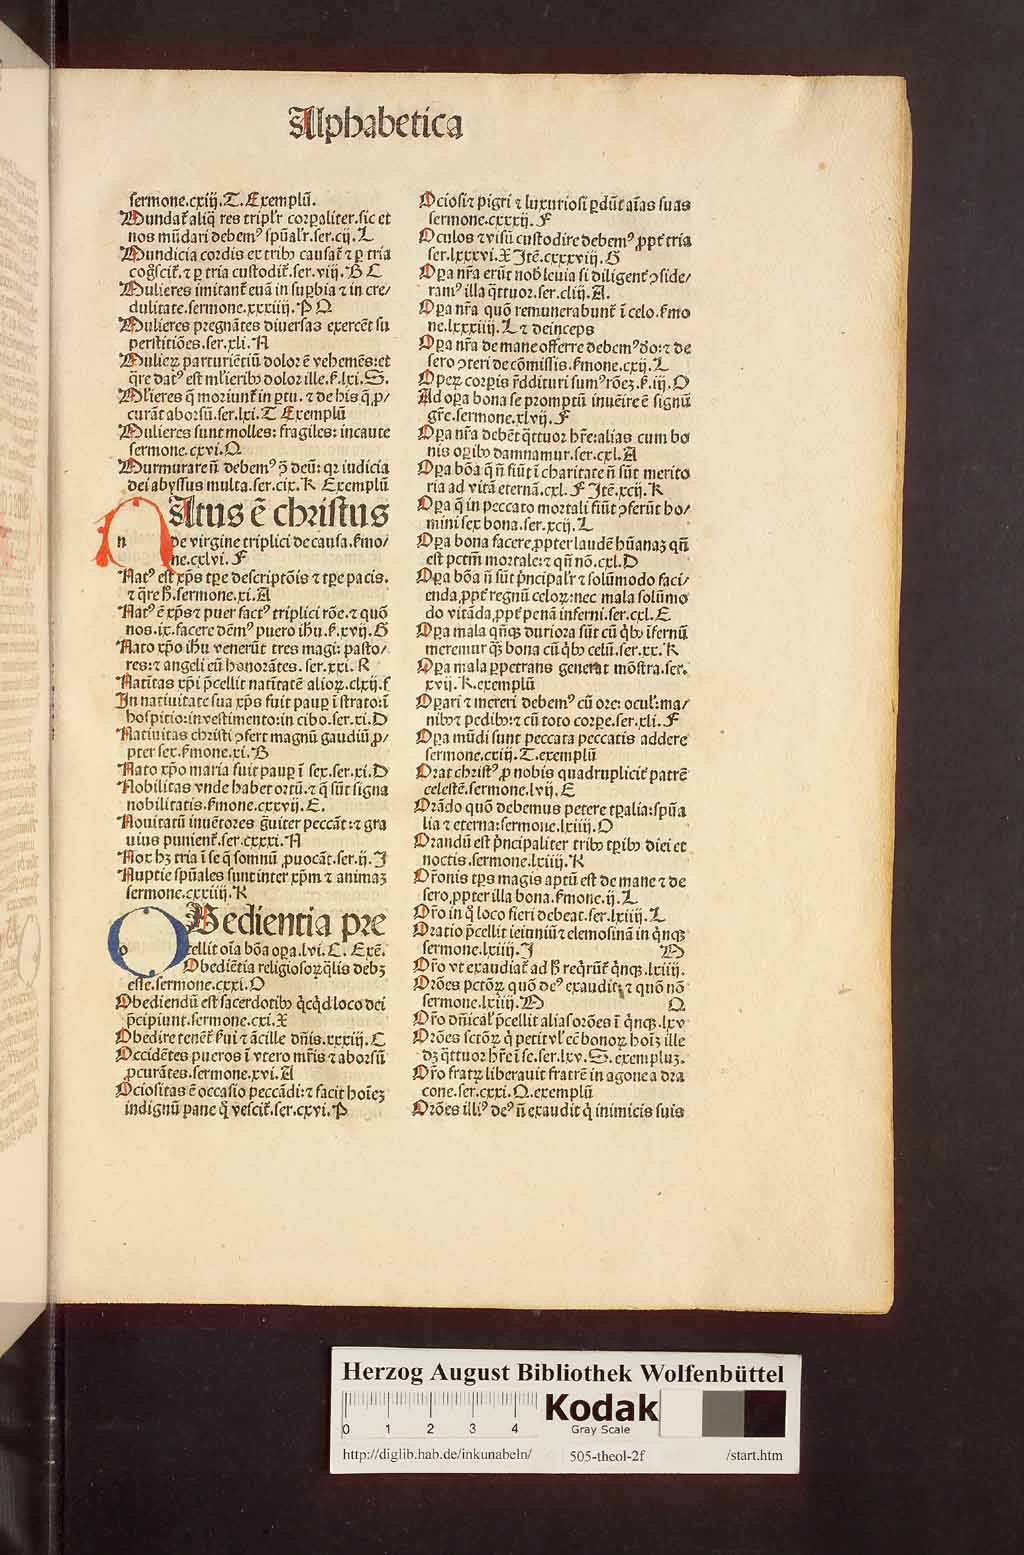 Alphabetica
sermone.cxiij.T.Exemplũ.
Mundat᷑ aliq̃ res tripl'r corꝑaliter.sic et
nos mũdari debemꝰ spũal'r.ser.cij.L
Mundicia cordis ex tribꝰ causat᷑ ⁊ ꝑ tria
cog̃scit᷑.⁊ ꝑ tria custodit᷑.ser.viij.B C
Mulieres imitant᷑ euã in suꝑbia ⁊ in cre/
dulitate.sermone.xxxiiij.P Q
Mulieres pregnãtes diuersas exercẽt su
perstitiões.ser.xli.A
Mulieꝝ parturiẽtiũ dolor ẽ vehemẽs:et
q̃re datꝰ est ml'ieribꝰ dolor ille.ẞ.lxi.S.
Ml'ieres q̃ moriunt᷑ in ꝑtu.⁊ de his q̃ ꝓ/
curãt aborsũ.ser.lxi.T Exemplũ
Mulieres sunt molles: fragiles: incaute
sermone.cxvi.Q
Murmurare ñ debemꝰ ↄ̃ deũ: qꝛ iudicia
dei abyssus multa.ser.cix.K Exemplũ
n Atus ẽ christus
de virgine triplici de causa.ẞmo/
ne.cxlvi.F
Natꝰ est xp̃s tꝑe descriptõis ⁊ tꝑe pacis.
⁊ q̃re ħ.sermone.xi.A
Natꝰ ẽ xp̃s ⁊ puer factꝰ triplici rõe.⁊ quõ
nos.ix.facere dẽmꝰ puero ih̃u.ẞ.xvij.G
Nato xp̃o ih̃u venerũt tres magi: pasto/
res:⁊ angeli cũ honorãtes.ser.xxi.K
Natĩtas xp̃i p̃cellit natĩtatẽ alioꝝ.clxij.f
In natiuitate sua xp̃s fuit pauꝑ ĩ strato:ĩ
hospitio:in vestimento:in cibo.ser.xi.D
Natiuitas christi ↄfert magnũ gaudiũ ꝓ/
pter sex.ẞmone.xi.B
Nato xp̃o maria fuit pauꝑ ĩ sex.ser.xi.D
Nobilitas vnde habet ortũ.⁊ q̃ sũt signa
nobilitatis.ẞmone.cxxvij.E.
Nouitatũ inuẽtores g̃uiter peccãt:⁊ gra
uius punient᷑.ser.cxxxi.A
Nox hꝫ tria ĩ se q̃ somnũ ꝓuocãt.ser.ij.I
Nuptie spũales sunt inter xp̃m ⁊ animaꝫ
sermone.cxxiiij.K
o Bedientia pre
cellit oĩa bõa oꝑa.lvi.C. Exẽ.
Obediẽtia religiosoꝝ q̃lis debꝫ
esse.sermone.cxxi.O
Obediendũ est sacerdotibꝰ q̃cq̃d loco dei
p̃cipiunt.sermone.cxi.X
Obedire tenẽt᷑ ẞui ⁊ ãcille dñis.xxxiij.C
Occidẽtes pueros ĩ vtero mr̃is ⁊ aborsũ
ꝓcurãtes.sermone.xvi.A
Ociositas ẽ occasio peccãdi:⁊ facit hoĩeꝫ
indignũ pane q̃ vescit᷑.ser.cxvi.P
Ociosi ⁊ pigri ⁊ luxuriosi ꝑdũt aĩas suas
sermone.cxxxij.F
Oculos ⁊ visũ custodire debemꝰ ꝓpt᷑ tria
ser.lxxxvi.X Itẽ.cxxxviij.G
Oꝑa nr̃a erũt nob̾ leuia si diligent᷑ ↄside/
ramꝰ illa q̃ttuor.ser.cliij.A.
Oꝑa nr̃a quõ remunerabunt᷑ ĩ celo.ẞmo
ne.lxxxiiij.L ⁊ deinceps
Oꝑa nr̃a de mane offerre debemꝰ d̃o:⁊ de
sero ↄteri de cõmissis.ẞmone.cxij.L
Opeꝝ corꝑis r̃ddituri sumꝰ rõeꝫ.ẞ.iij.O
Ad oꝑa bona se promptũ inuẽire ẽ signũ
gr̃e.sermone.xlvij.F
Oꝑa nr̃a debẽt q̃ttuor hr̃e:alias cum bo
nis oꝑibꝰ damnamur.ser.cxl.A
Oꝑa bõa q̃ ñ fiũt ĩ charitate ñ sũt merito
ria ad vitã eternã.cxl.F Itẽ.xcij.K
Oꝑa q̃ in peccato mortali fiũt ↄferũt ho/
mini sex bona.ser.xcij.L
Oꝑa bona facere ꝓpter laudẽ hũanaꝫ qñ
est pctm̃ mortale:⁊ qñ nõ.cxl.D
Oꝑa bõa ñ sũt p̃ncipal'r ⁊ solũmodo faci/
enda ꝓpt᷑ regnũ celoꝝ:nec mala solũmo
do vitãda ꝓpt᷑ penã inferni.ser.cxl.E
Oꝑa mala qñqꝫ duriora sũt cũ q̃bꝰ ĩfernũ
meremur qꝫ bona cũ q̃bꝰ celũ.ser.xx.K
Oꝑa mala ꝑpetrans generat mõstra.ser.
xvij.K.exemplũ
Oꝑari ⁊ mereri debemꝰ cũ ore: ocul':ma/
nibꝰ ⁊ pedibꝰ:⁊ cũ toto corꝑe.ser.xli.F
Oꝑa mũdi sunt peccata peccatis addere
sermone.cxiij.T.exemplũ
Orat christꝰ ꝓ nobis quadruplicit᷑ patrẽ
celestẽ.sermone.lvij.E
Orãdo quõ debemus petere tꝑalia:spũa
lia ⁊ eterna:sermone.lxiiij.O
Orandũ est p̃ncipaliter tribꝰ tꝑibꝰ diei et
noctis.sermone.lxiiij.K
Or̃onis tꝑs magis aptũ est de mane ⁊ de
sero ꝓpter illa bona.ẞmone.ij.L
Or̃o in q̃ loco fieri debeat.ser.lxiiij.L
Oratio p̃cellit ieiuniũ ⁊ elemosinã in q̃nqꝫ
sermone.lxiiij.I M
Or̃o vt exaudiat᷑ ad ħ req̃rũt᷑ q̃nqꝫ.lxiiij.
Orões pctõꝝ quõ deꝰ exaudit:⁊ quõ nõ
sermone.lxiiij.M Q
Or̃o dñical' p̃cellit alias orões ĩ q̃nqꝫ.lxv
Orões sctõꝝ q̃ petit vl' cẽ bonoꝝ hoĩꝫ ille
dꝫ q̃ttuor hr̃e ĩ se.ser.lxv.S.exempluꝫ.
Or̃o fratꝝ liberauit fratrẽ in agone a dra
cone.ser.cxxi.Q.exemplũ
Orões illiꝰ deꝰ ñ exaudit q̃ inimicis suis
Herzog August Bibliothek Wolfenbüttel
0 1 2 3 4
Kodak
Gray Scale
http://diglib.hab.de/inkunabeln/ 505-theol-2f /start.htm